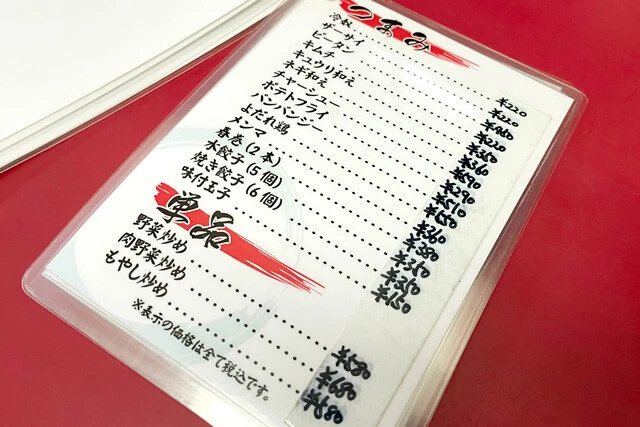 つまみ
冷奴 ¥220
ザーサイ ¥220
ピータン
キムチ ¥220
キュウリ和え ¥350
ネギ和え ¥360
チャーシュー
ポテトフライ ¥290
バンバンジー ¥510
よだれ鶏
メンマ
春巻(2本) ¥380
水餃子(5個) ¥350
焼き餃子(6個) ¥350
味付玉子 ¥150
単品
野菜炒め ¥580
肉野菜炒め ¥680
もやし炒め ¥580
※表示の価格は全て税込です。